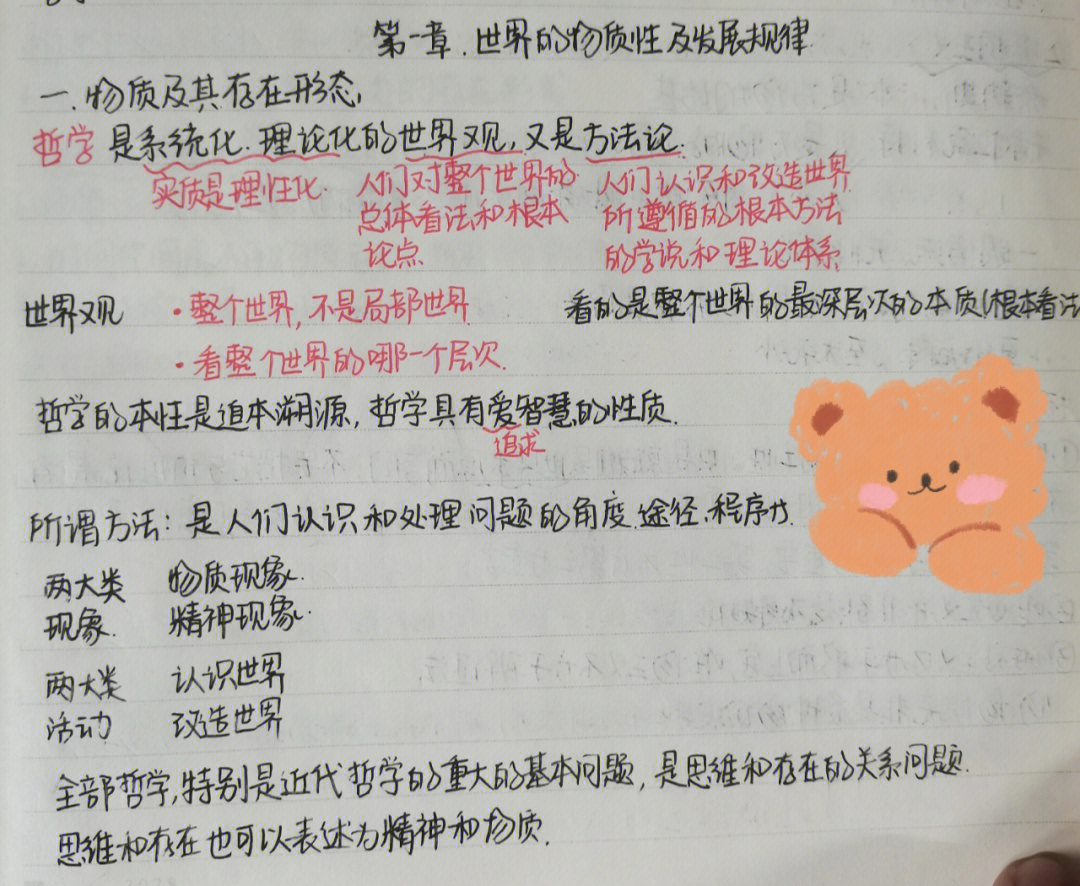 第一章.世界的物质性及发展规律
一.物质及其存在形态,
哲学是系统化.理论化的世界观,又是方法论.
实质是理性化 人们对整个世界的 人们认识和改造世界
总体看法和根本 所遵循的根本方法
论点 的学说和理论体系
世界观 ·整个世界,不是局部世界 看的是整个世界的最深层次的本质(根本看法
·看整个世界的哪一个层次.
哲学的本性是追本溯源,哲学具有爱智慧的性质.
追求
所谓方法:是人们认识和处理问题的角度.途径.程序
两大类 物质现象.
现象. 精神现象.
两大类 认识世界
活动 改造世界
全部哲学,特别是近代哲学的重大的基本问题,是思维和存在的关系问题.
思维和存在也可以表述为精神和物质.